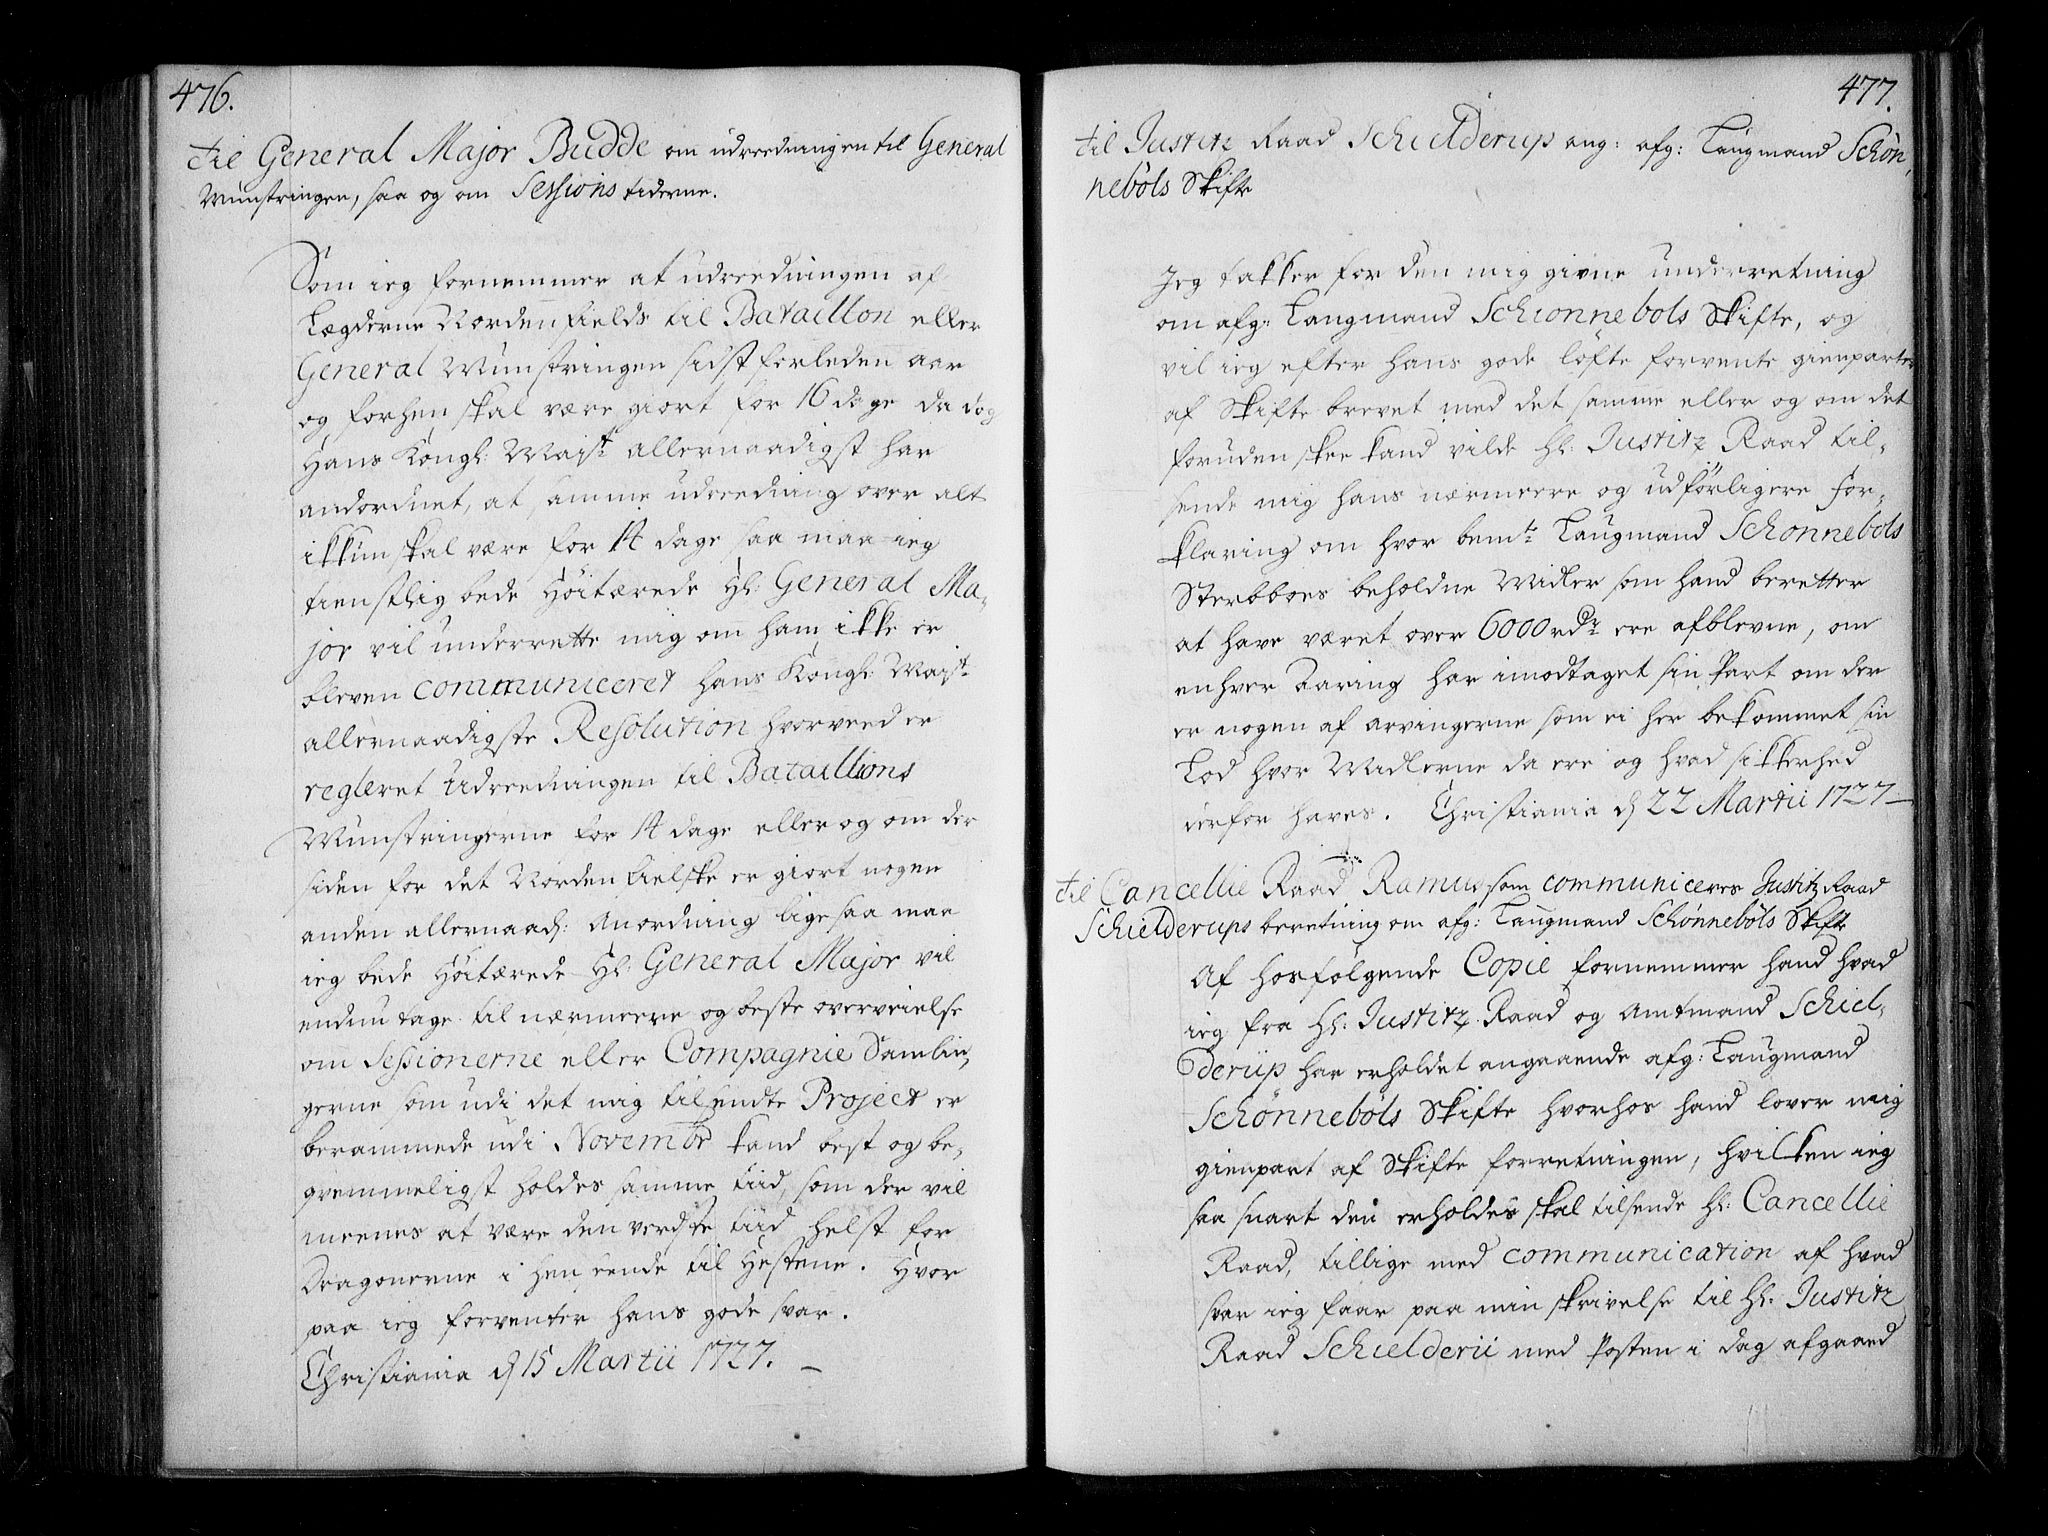 476.
Til General Major Budde om udreedningen til General
Munstringen, saa og om Sessions tiderne.
Som ieg fornemmer at udreedningen af
Lægderne Nordenfields til Bataillon eller
General Munstringen sidst forleden aar
og forhen skal være giort for 16 dage da dog
Hans Kongl: Maist: allernaadigst har
andordnet, at samme udreedning over alt
ikkun skal være for 14 dage saa maa ieg
tienstlig bede Høitærede Hl: General Ma-
jor vil underrette mig om ham ikke er
bleven communiceret hans Kongl: Maist:
allernaadigste Resolution hvorveed er
regleret Udreedningen til Bataillions
Munstringerne for 14 dage eller og om der
siden for det Nordenfielske er giort nogen
anden allernaad: Anordning lige saa maa
ieg bede Høitærede Hl: General Major vil
endnu tage til nærmeere og beste overveielse
om Sessionerne eller Compagnie Samlin,
gerne som udi det mig tilsendte Project er
berammede udi Novembr kand best og be,
qvemmeligst holdes samme tiid, som der vil
meenes at være den verdste tiid helst for
Dragonerne i henseende til Hestene. Hvor
paa ieg forventer hans gode svar.
Christiania d 15 Martii 1727.
477.
Til Justitz Raad Schielderup ang: afg: Laugmand Schøn,
nebøls Skifte
Jeg takker for den mig givne underretning
om afg: Laugmand Schionnebols Skifte, og
vil ieg efter hans gode løfte forvente gienparten
af Skifte brevet med det samme eller og om det
foruden skee kand vilde Hl: Justitz Raad til,
sende mig hans nærmeere og udførligere for,
klaring om hvor bemte: Laugmand Schonnebols
Sterbboes beholdne Midler som hand beretter
at have været over 6000 rdr: ere afblevne, om
enhver Aaring har imodtaget sin Part om der
er nogen af arvingerne som ei her bekommet sin
Lod hvor Midlerne da ere og hvad sikkerhed
derfor haves. Christiania d 22 Martii 1727
Til Cancellie Raad Ramus som communiceres Justitz Raad
Schielderups beretning om afg: Laugmand Schønnebøls Skifte
Af hosfølgende Copie fornemmer hand hvad
ieg fra Hl: Justitz Raad og Amtmand Schiel,
derup har erholdet angaaende afg: Laugmand
Schønnebøls Skifte hvorhos hand lover mig
gienpart af Skifte forretningen, hvilken ieg
saa snart den erholdes skal tilsende Hl: Cancellie
Raad, tillige med communication af hvad
svar ieg faar paa min skrivelse til Hl: Justitz
Raad Schielderu med Posten i dag afgaaed